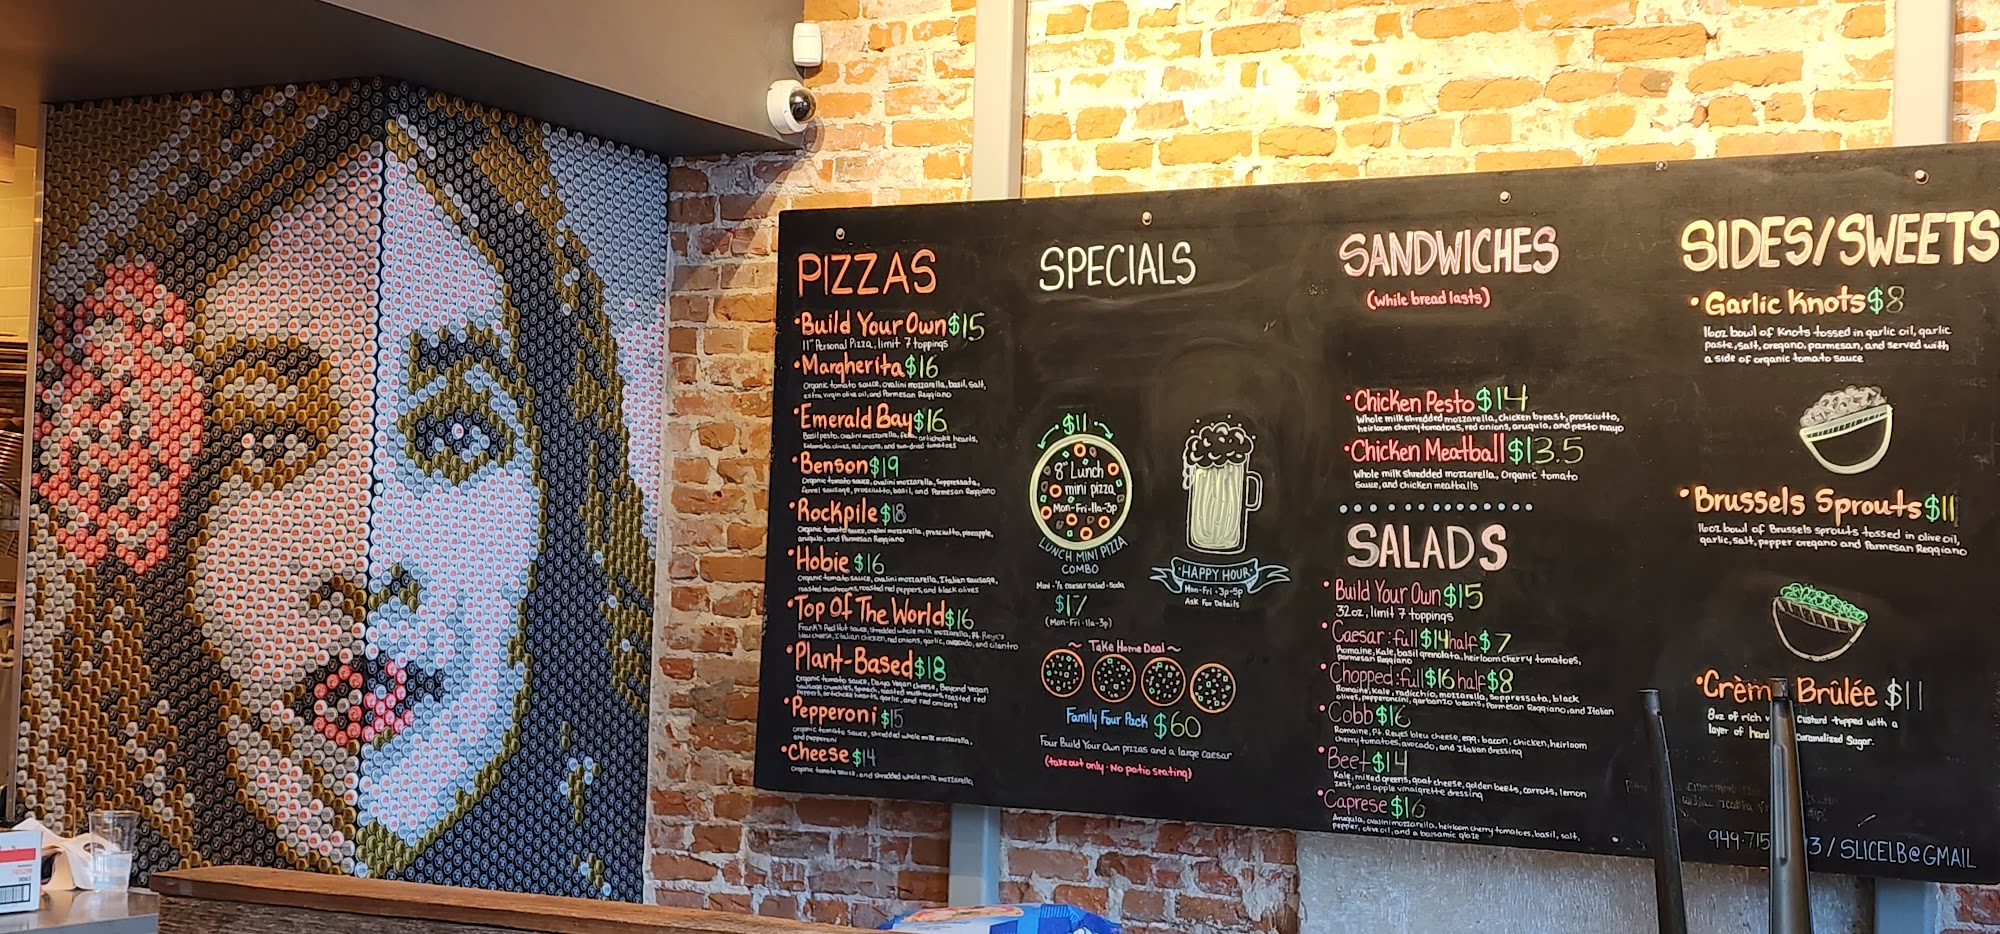 PIZZAS
•Build Your Own $15
11" Personal Pizza, limit 7 toppings
•Margherita $16
Organic tomato sauce, ovalini mozzarella, basil, salt,
extra virgin olive oil, and Parmesan Reggiano
•Emerald Bay $16
Basil pesto, ovalini mozzarella, feta, artichoke hearts,
kalamata olives, red onions, and sun-dried tomatoes
•Benson $19
Organic tomato sauce, ovalini mozzarella, Soppressata,
fennel sausage, prosciutto, basil, and Parmesan Reggiano
•Rockpile $18
Organic tomato sauce, ovalini mozzarella, prosciutto, pineapple,
arugula, and Parmesan Reggiano
•Hobie $16
Organic tomato sauce, ovalini mozzarella, Italian sausage,
roasted mushrooms, roasted red peppers, and black olives
•Top Of The World $16
Frank's Red Hot sauce, shredded whole milk mozzarella, Pt. Reye's
bleu cheese, Italian chicken, red onions, garlic, avocado, and cilantro
•Plant-Based $18
Organic tomato sauce, Daiya Vegan cheese, Beyond Vegan
sausage crumbles, Spinach, roasted mushrooms, roasted red
peppers, artichoke hearts, garlic, and red onions
•Pepperoni $15
Organic tomato sauce, shredded whole milk mozzarella,
and pepperoni
•Cheese $14
Organic tomato sauce, and shredded whole milk mozzarella
SPECIALS
$11
8" Lunch
mini pizza
Mon-Fri-11a-3p
LUNCH MINI PIZZA
COMBO
Mini - ½ caesar salad - soda
$17
(Mon-Fri-11a-3p)
HAPPY HOUR
Mon-Fri - 3p-5p
Ask For Details
~ Take Home Deal ~
Family Four Pack $60
Four Build Your Own pizzas and a large caesar
(take out only - No patio seating)
SANDWICHES
(while bread lasts)
•Chicken Pesto $14
Whole milk shredded mozzarella, chicken breast, prosciutto,
heirloom cherry tomatoes, red onions, arugula, and pesto mayo
•Chicken Meatball $13.5
Whole milk shredded mozzarella, Organic tomato
sauce, and chicken meatballs
SALADS
•Build Your Own $15
32oz, limit 7 toppings
•Caesar: full $14 half $7
Romaine, Kale, basil gremolata, heirloom cherry tomatoes,
Parmesan Reggiano
•Chopped: full $16 half $8
Romaine, Kale, radicchio, mozzarella, Soppressata, black
olives, pepperoncini, garbanzo beans, Parmesan Reggiano, and Italian
•Cobb $16
Romaine, Pt. Reyes bleu cheese, egg, bacon, chicken, heirloom
cherry tomatoes, avocado, and Italian dressing
•Beet $14
Kale, mixed greens, goat cheese, golden beets, carrots, lemon
zest, and apple vinaigrette dressing
•Caprese $16
Arugula, ovalini mozzarella, heirloom cherry tomatoes, basil, salt,
pepper, olive oil, and a balsamic glaze
SIDES/SWEETS
•Garlic Knots $8
16oz bowl of Knots tossed in garlic oil, garlic
paste, salt, oregano, parmesan, and served with
a side of organic tomato sauce
•Brussels Sprouts $11
16oz bowl of Brussels sprouts tossed in olive oil,
garlic, salt, pepper oregano and Parmesan Reggiano
•Crèm Brûlée $11
8oz of rich custard topped with a
layer of hard caramelized Sugar.
949.715 3 / SLICELB@GMAIL